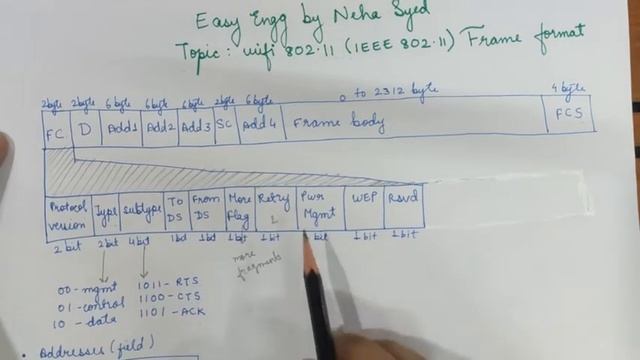 Easy Engg by Neha Syed
Topic: wifi 802.11 (IEEE 802.11) Frame format
2 byte 2 byte 6 byte 6 byte 6 byte 2 byte 6 byte 0 to 2312 byte 4 byte
FC D Add1 Add2 Add3 SC Add4 Frame body FCS
Protocol version Type Subtype To DS From DS More Flag Retry 1 Pwr Mgmt WEP Rsvd
2 bit 2 bit 4 bit 1 bit 1 bit 1 bit 1 bit bit 1 bit 1 bit
more fragments
00 - mgmt 1011 - RTS
01 - control 1100 - CTS
10 - data 1101 - ACK
• Addresses (field)